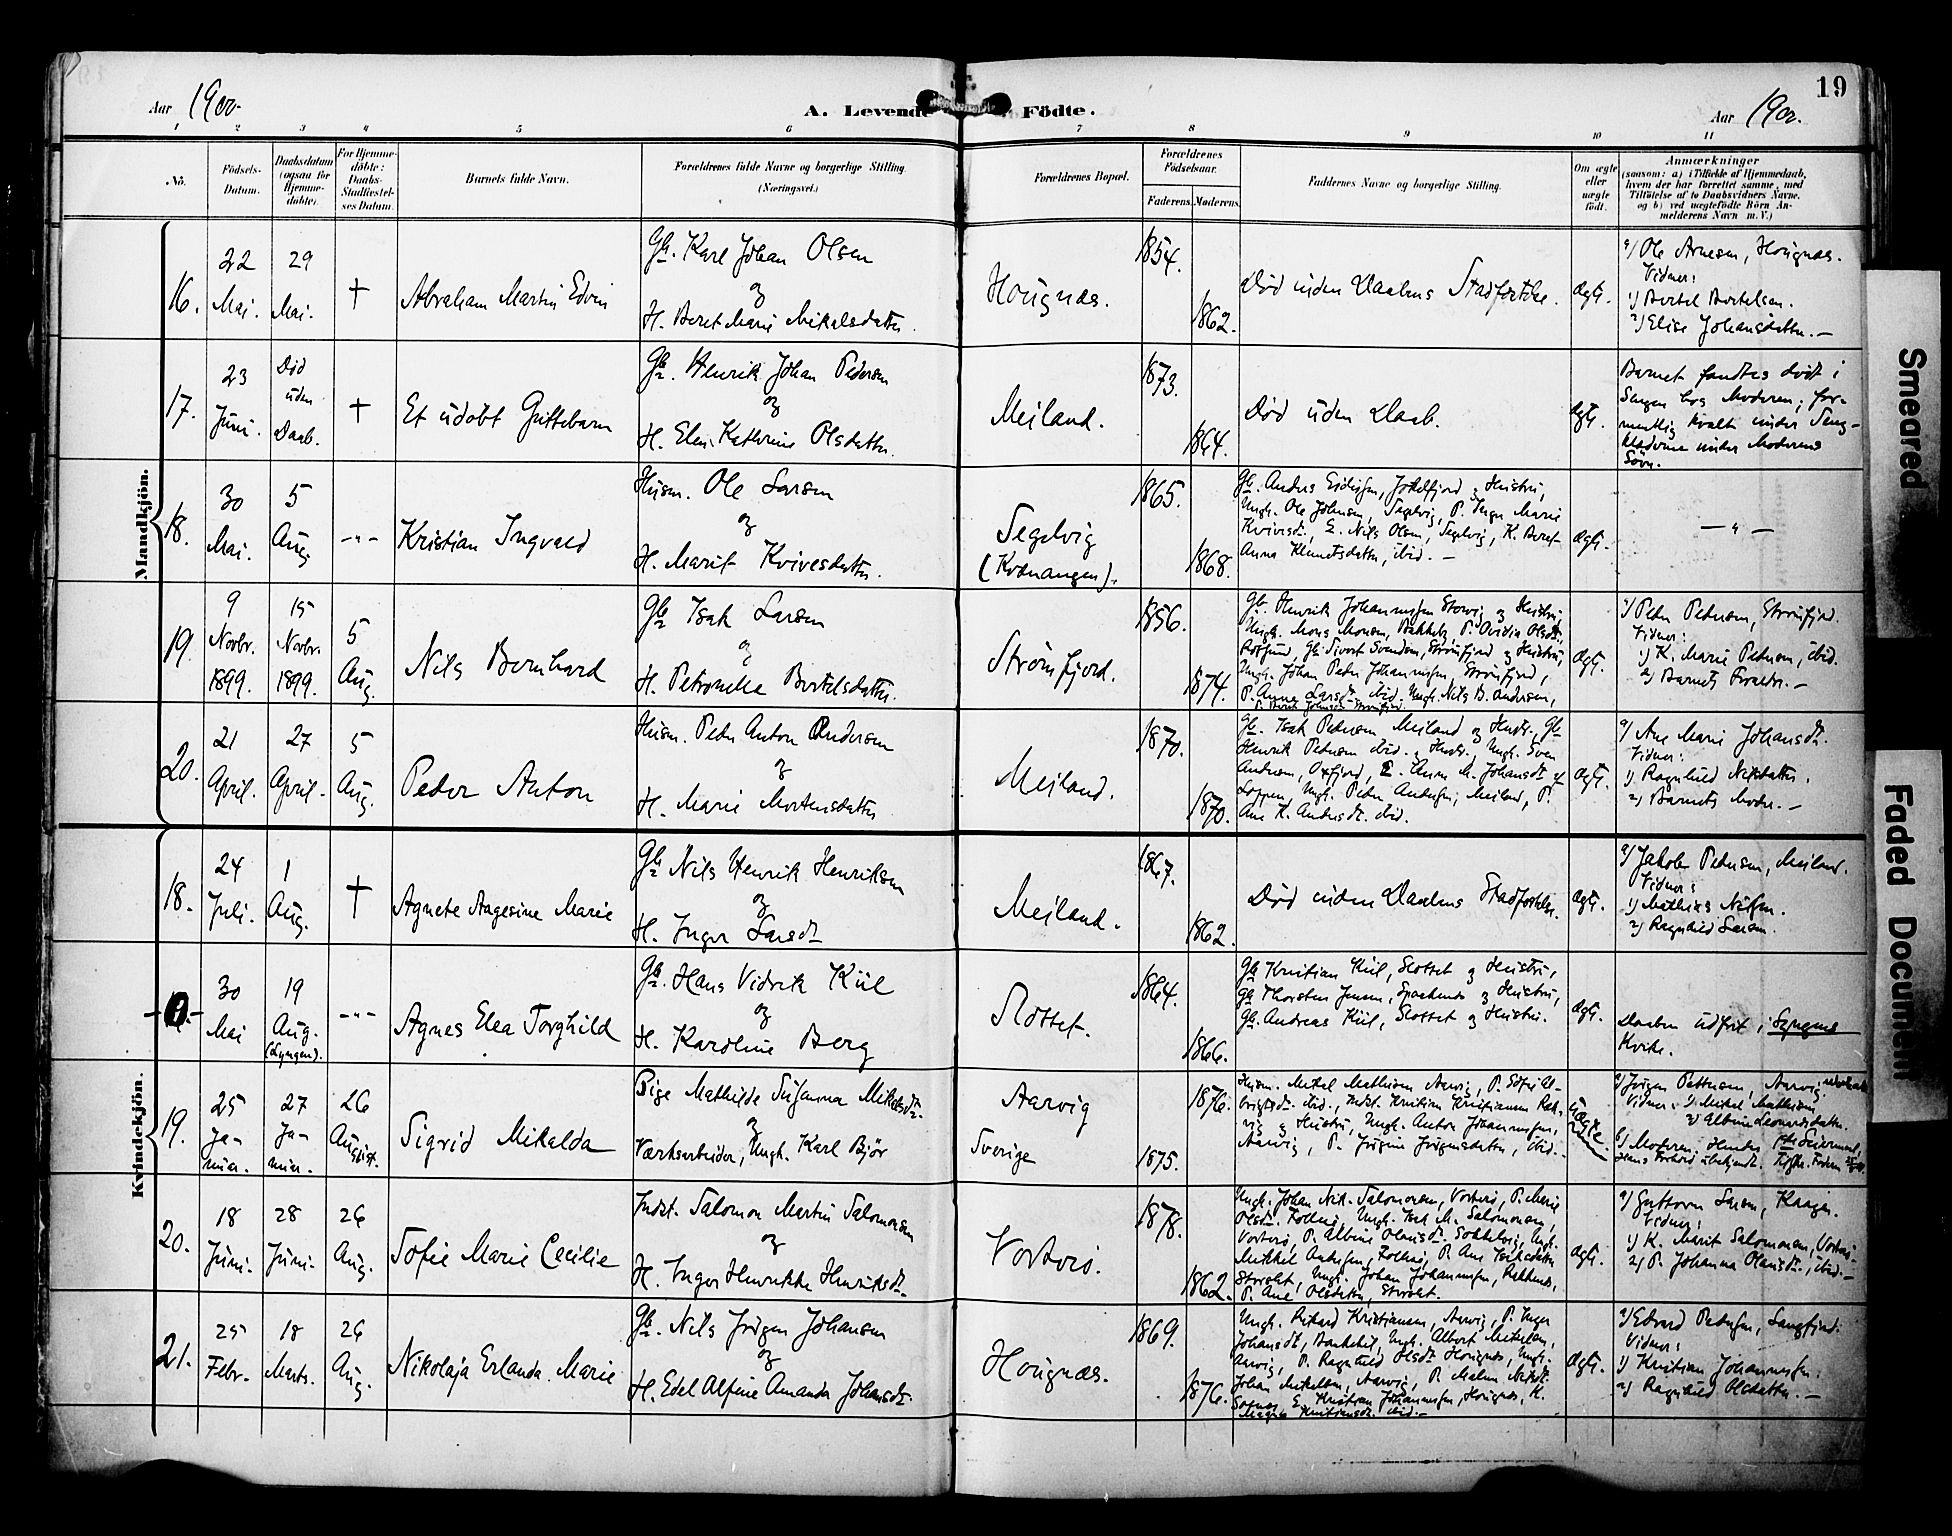 19
Aar 1900.
A. Levende Födte.
Aar 1900.
1 2 3 4 5 6 7 8 9 10 11
No.
Födsels-
Datum.
Daabsdatum
(ogsaa for
Hjemme-
döbte).
For Hjemme-
döbte:
Daabs-
Stadfæstel-
ses Datum.
Barnets fulde Navn.
Forældrenes fulde Navne og borgerlige Stilling
(Næringsvei.)
Forældrenes Bopæl.
Forældrenes
Födselsaar.
Faderens. Moderens.
Faddernes Navne og borgerlige Stilling.
Om ægte
eller
uægte
födt.
Anmærkninger
(saasom: a) i Tilfælde af Hjemmedaab,
hvem der har forrettet samme, med
Tilföielse af to Daabsvidners Navne,
og b) ved uægtefödte Börn An-
melderens Navn m. V.)
Mandkjön.
16.
22
Mai.
29
Mai.
†
Abraham Martin Edvin
Gb. Karl Johan Olsen
og
H. Beret Marie Mikalsdatter.
Hougnæs.
1854.
1862.
Død uden Daabens Stadfæstelse.
ægte.
a) Ole Arnesen, Hougnæs.
Vidner:
1) Bertel Bertelsen.
2) Elise Johansdatter. —
17.
23
Juni.
Død
uden
Daab.
†
Et udøbt Guttebarn
Gb. Henrik Johan Pedersen
og
H. Elen Kathrine Olsdatter.
Meiland.
1873.
1864.
Død uden Daab.
ægte.
Barnet fandtes dødt i
Sengen hos Moderen; for-
mentlig kvalt under Seng-
klæderne under Moderens
Søvn.
18.
30
Mai.
5
Aug.
-"-
Kristian Ingvald
Husm. Ole Larsen
og
H. Marit Kvivesdatter.
Segelvig
(Kvænangen).
1865.
1868.
Ungk. Ole Johnsen, Segelvig, P. Inger Marie
Nils Olsen, Segelvig, K. Beret
Anna Klemetsdatter, ibid. —
ægte.
— " —
19.
9
Novbr.
1899.
15
Novbr.
1899.
5
Aug.
Nils Bernhard
Gb. Isak Larsen
og
H. Petronelle Bertelsdatter.
Strømfjord.
1856.
1874.
Gb. Henrik Johannessen Storvig og Hustru,
Ungk. Mons Monsen, Bakkeby, P. Ovidia Olsdt.,
Rotsund, Gb. Sivert Svendsen, Strømfjord og Hustru,
Ungk. Johan Peder Johannessen, Strømfjord,
P. Anna Larsdt. ibid. Ungk. Nils B. Andersen,
ægte.
a) Peder Pedersen, Strømfjord.
Vidner:
1) K. Marie Pedersen, ibid.
2) Barnets Forældre. —
20.
21
April.
27
April.
5
Aug.
Peder Anton
Husm. Peder Anton Andersen
og
H. Marie Mortensdatter
Meiland.
1870.
1870.
Gb. Isak Pedersen Meiland og Hustr. Gb.
Henrik Pedersen ibid. og Hustr. Ungk. Sven
Andersen, Oxfjord, Anne M. Johansdt.
Loppen, Ungk. Peder Andersen, Meiland, P.
Ane K. Andersdt. ibid.
ægte.
a) Ane Marie Johansdt.
Vidner:
1) Ragnhild Nilsdatter.
2) Barnets Moder. —
Kvindekjön.
18.
24
Juli.
1
Aug.
†
Agnete Aagesine Marie
Gb. Nils Henrik Henriksen
og
H. Inger Larsdt.
Meiland.
1867.
1862.
Død uden Daabens Stadfæstelse.
ægte.
a) Jakob Pedersen, Meiland.
Vidner:
1) Mathias Nilsen.
2) Ragnhild Larsen.
30
Mai
19
Aug.
(Lyngen).
-"-
Agnes Elea Torghild
Gb. Hans Vidrik Kiil
og
H. Karoline Berg
Slottet.
1864.
1866.
Gb. Kristian Kiil, Slottet og Hustru,
Gb. Thorsten Jensen, Spaakenes og Hustru,
Gb. Andreas Kiil, Slottet og Hustru.
ægte.
Daaben udført i Lyngens
Kirke.
19.
25
Ja-
nuar.
27
Ja-
nuar.
26
August.
Sigrid Mikalda
Pige Mathilde Susanna Mikalsdt.
og
Værksarbeider, Ungk. Karl Bjør
Aarvig
Sverige
1876.
1875.
Husm. Mikal Mathisen Aarvig, P. Sofie Al-
brigtsdt. ibid., Indst. Kristian Kristiansen Rak-
vig og Hustru, Ungk. Anton Johannessen,
Aarvig, P. Jørgine Jørgensdatter, ibid.
uægte.
a) Jørgen Pettersen, Aarvig
Vidner: 1) Mikal Mathisen
2) Albine Leonardsdatter.
b) Moderen.
20.
18
Juni.
28
Juni.
26
Aug.
Sofie Marie Cecilie
Indst. Salomon Martin Salomonsen
og
H. Inger Henrikke Henriksdt.
Vorterø.
1878.
1862.
Ungk. Johan Nik. Salomonsen, Vorterø, P. Marie
Olsdt. Follesø, Ungk. Isak M. Salomonsen,
Vorterø, P. Albine Olausdt. Sokkelvig, Ungk.
Mikkel Andersen, Follesø, P. Ane Isaksdatter
Storslet, Ungk. Johan Johannessen,
P. Ane Olsdatter, Storslet.
ægte.
a) Guttorm Larsen, Kaagen.
Vidner:
1) K. Marit Salomonsen, Vorterø
2) P. Johanna Olausdt., ibid. —
21.
25
Febr.
18
Marts.
26
Aug.
Nikolaja Erlanda Marie
Gb. Nils Jørgen Johansen
og
H. Edel Alfine Amanda Johansdt.
Hougnæs.
1869.
1876.
Ungk. Rikard Kristiansen, Aarvig, P. Inger
Johansdt., Bankekil, Ungk. Albert Mikalsen,
Aarvig, P. Ragnhild Olsdt. Hougnæs, Ungk.
Johan Mikalsen, Aarvig, P. Malene Nilsdt.
Kristian Johannessen, Hougnæs, K.
Magna Kristiansdt. ibid. —
ægte.
a) Edvard Pedersen, Langfjord.
Vidner:
1) Kristian Johannessen.
2) Ragnhild Olsdatter. —
Smeared
Faded Document